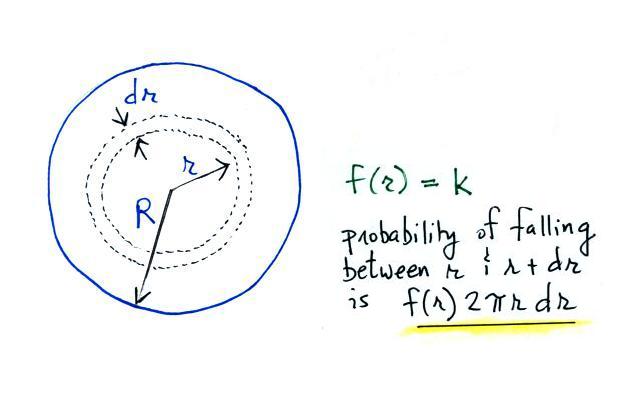 dr
r
R
f(r) = k
probability of falling
between r & r + dr
is f(r) 2πr dr